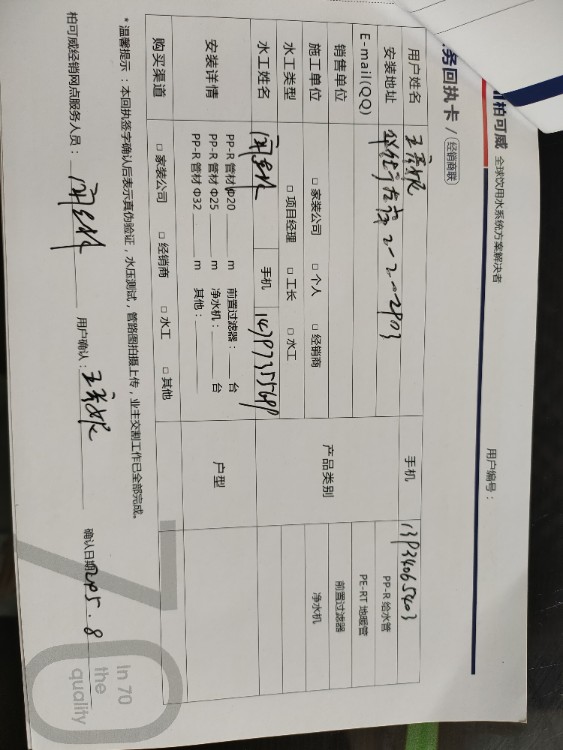 柏可威 全球饮用水系统方案解决者
务回执卡 / 经销商联
用户编号：
用户姓名 手机
安装地址 2-2-2903
E-mail(QQ)
销售单位
施工单位 □ 家装公司 □ 个人 □ 经销商
水工类型 □ 项目经理 □ 工长 □ 水工
水工姓名 手机
产品类别
PP-R 给水管
PE-RT 地暖管
前置过滤器
净水机
安装详情
PP-R 管材 Φ20 m 前置过滤器： 台
PP-R 管材 Φ25 m 净水机： 台
PP-R 管材 Φ32 m 其他：
户型
购买渠道 □ 家装公司 □ 经销商 □ 水工 □ 其他
*温馨提示：本回执签字确认后表示真伪验证，水压测试，管路图拍摄上传，业主交割工作已全部完成。
柏可威经销网点服务人员： 用户确认： 确认日期
In 70
the
quality